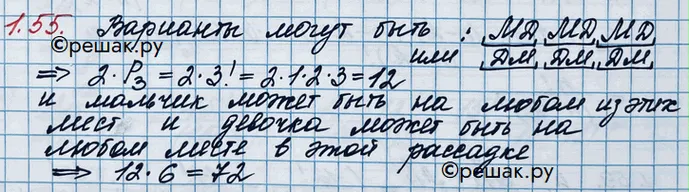 1.55. Варианты могут быть : МД, МД, МД,
©решак.ру или ДМ, ДМ, ДМ,
⇒ 2·P₃ = 2·3! = 2·1·2·3 = 12
и мальчик может быть на любом из этих
мест и девочка может быть на
любом месте в этой рассадке
⇒ 12·6 = 72
©решак.ру